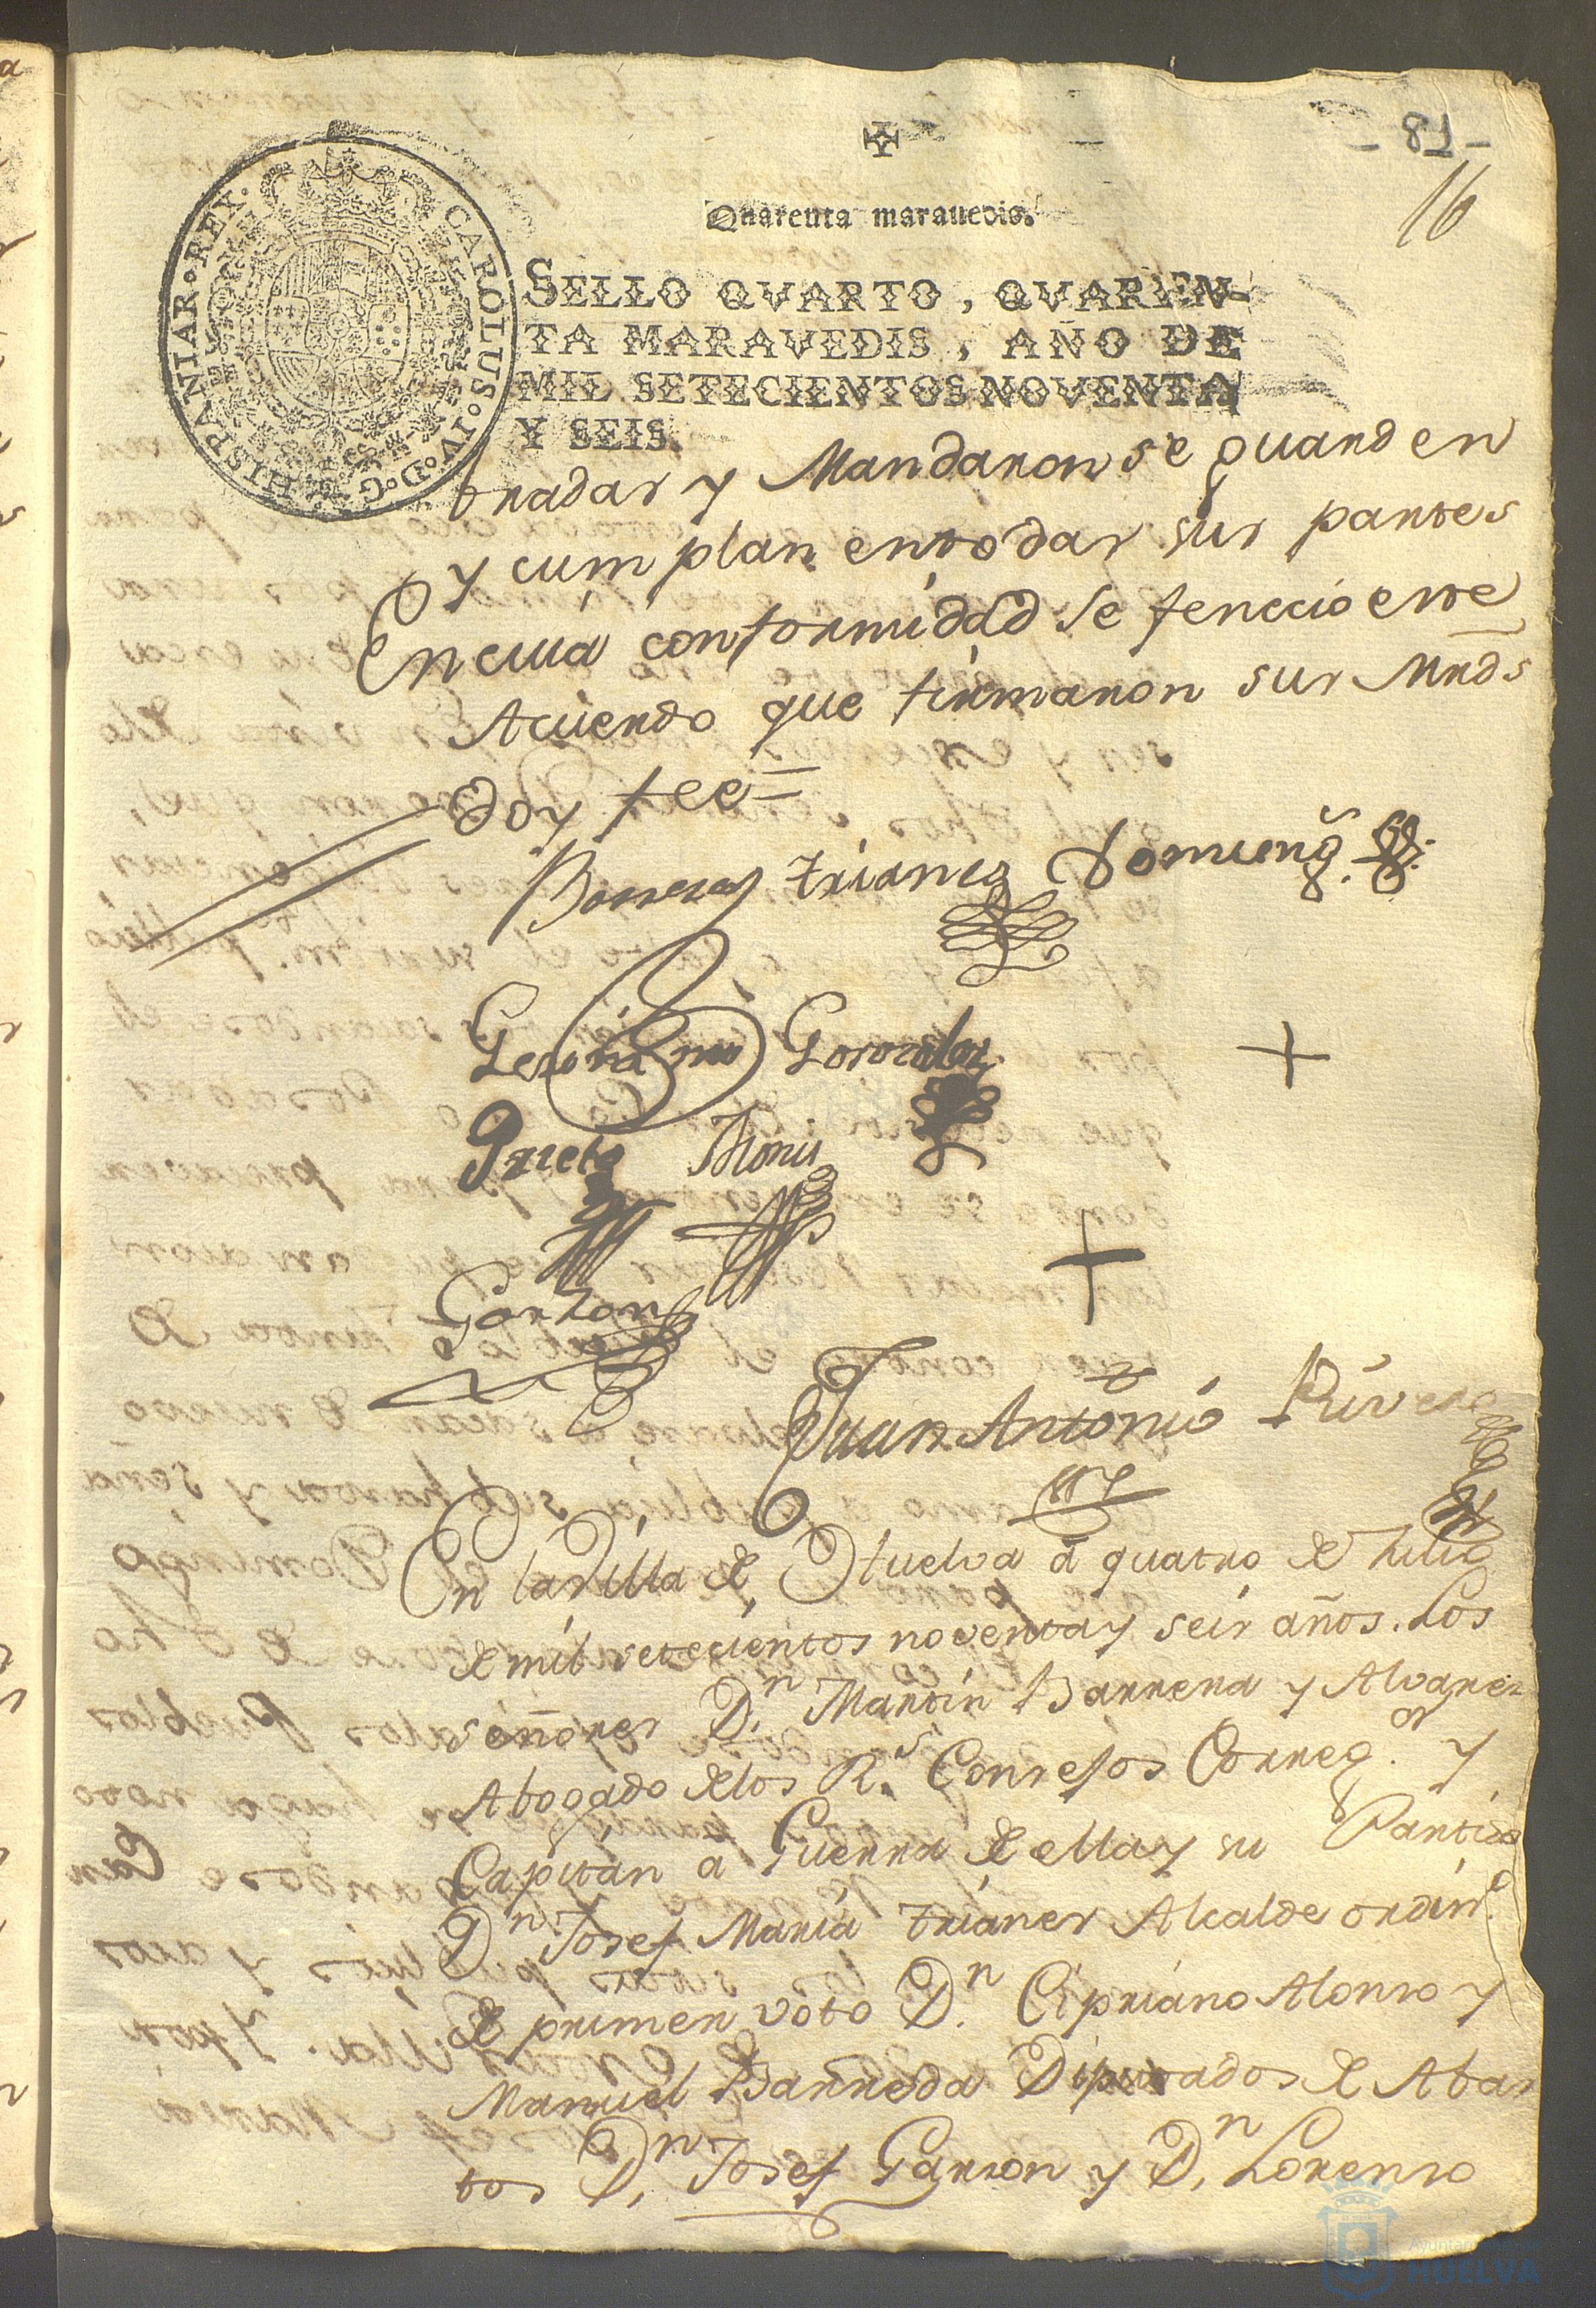 - 81 -
16
Quarenta marauedis.
CAROLUS·IV·D·G·HISPANIAR·REX·
SELLO QVARTO, QVAREN-
TA MARAVEDIS, AÑO DE
MIL SETECIENTOS NOVENTA
Y SEIS.
bradas y Mandaron se guarden
y cumplan en todas sus partes
En cuia conformidad se feneció este
Acuerdo que firmaron sus Mrds
Doy fee=
Barrera Trianes Doming.
Geronimo Gonzalez
+
Prieto Alonso
+
Garzon
Juan Antonio Rivera
En la Villa de Huelva á quatro de Julio
de mil setecientos noventa y seis años. Los
señores Dn. Martin Barrera y Alvarez
Abogado de los Rs. Consejos Correg.or y
Capitan a Guerra de ella y su Partido
Dn. Josef Maria Trianes Alcalde ordin.o
de primer voto Dn. Cipriano Alonso y
Manuel Barreda Diputados de Abas
tos Dn. Josef Garzon y Dn. Lorenso
Ayuntamiento de
HUELVA